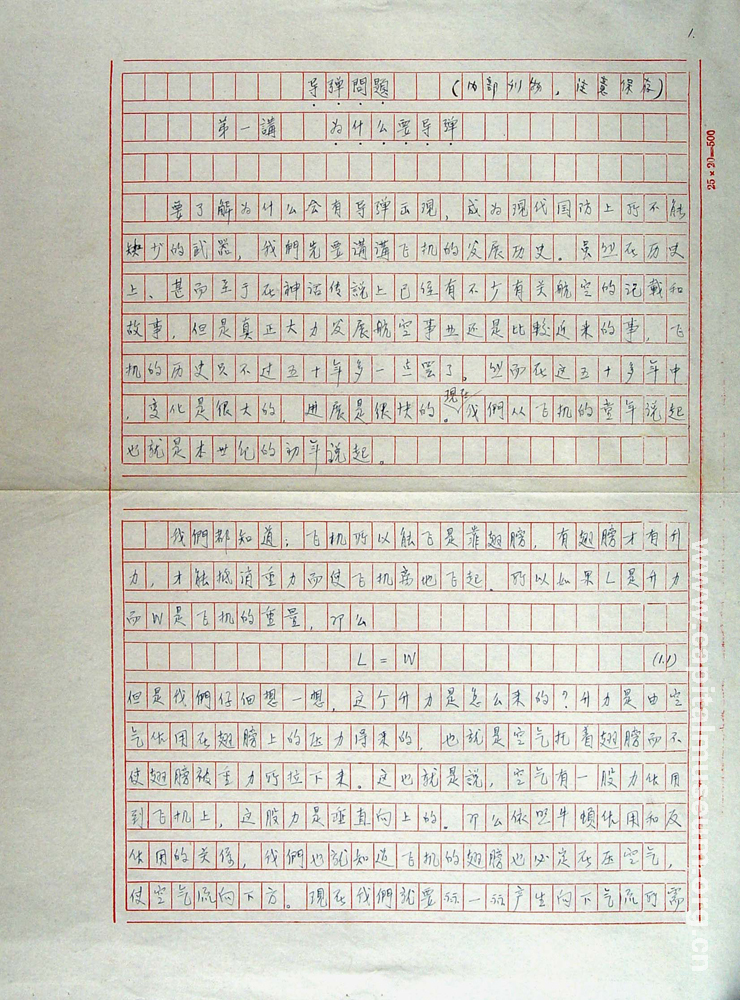 1.
导弹問題 (内部刊物,注意保存)
第一講 为什么要导弹
25×20=500
要了解为什么会有导弹出现,成为现代国防上所不能
缺少的武器,我們先要講講飞机的发展历史。虽然在历史
上、甚而至于在神话传說上已经有不少有关航空的記載和
故事,但是真正大力发展航空事业还是比較近来的事,飞
机的历史只不过五十年多一点罢了。然而在这五十多年中
,变化是很大的,进展是很快的。现在我們从飞机的童年说起
也就是本世纪的初年说起。
我們都知道:飞机所以能飞是靠翅膀,有翅膀才有升
力,才能抵消重力而使飞机离地飞起。所以如果L是升力
而W是飞机的重量,那么
L = W (1.1)
但是我們仔细想一想,这个升力是怎么来的?升力是由空
气作用在翅膀上的压力得来的,也就是空气托着翅膀而不
使翅膀被重力所拉下来。这也就是説,空气有一股力作用
到飞机上,这股力是垂直向上的。那么依照牛頓作用和反
作用的关係,我們也就知道飞机的翅膀也必定在压空气,
使空气流向下方。现在我們就要算一算产生向下气流所需
www.capitalmuseum.org.cn